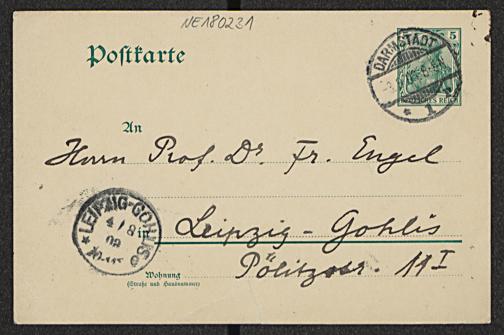 NE180231
5
Postkarte
DARMSTADT
* 1
DEUTSCHES REICH
An
Herrn Prof. Dr Fr. Engel
in Leipzig-Gohlis
LEIPZIG-GOHLIS
Wohnung
(Straße und Hausnummer)
Pölitzstr. 11 I